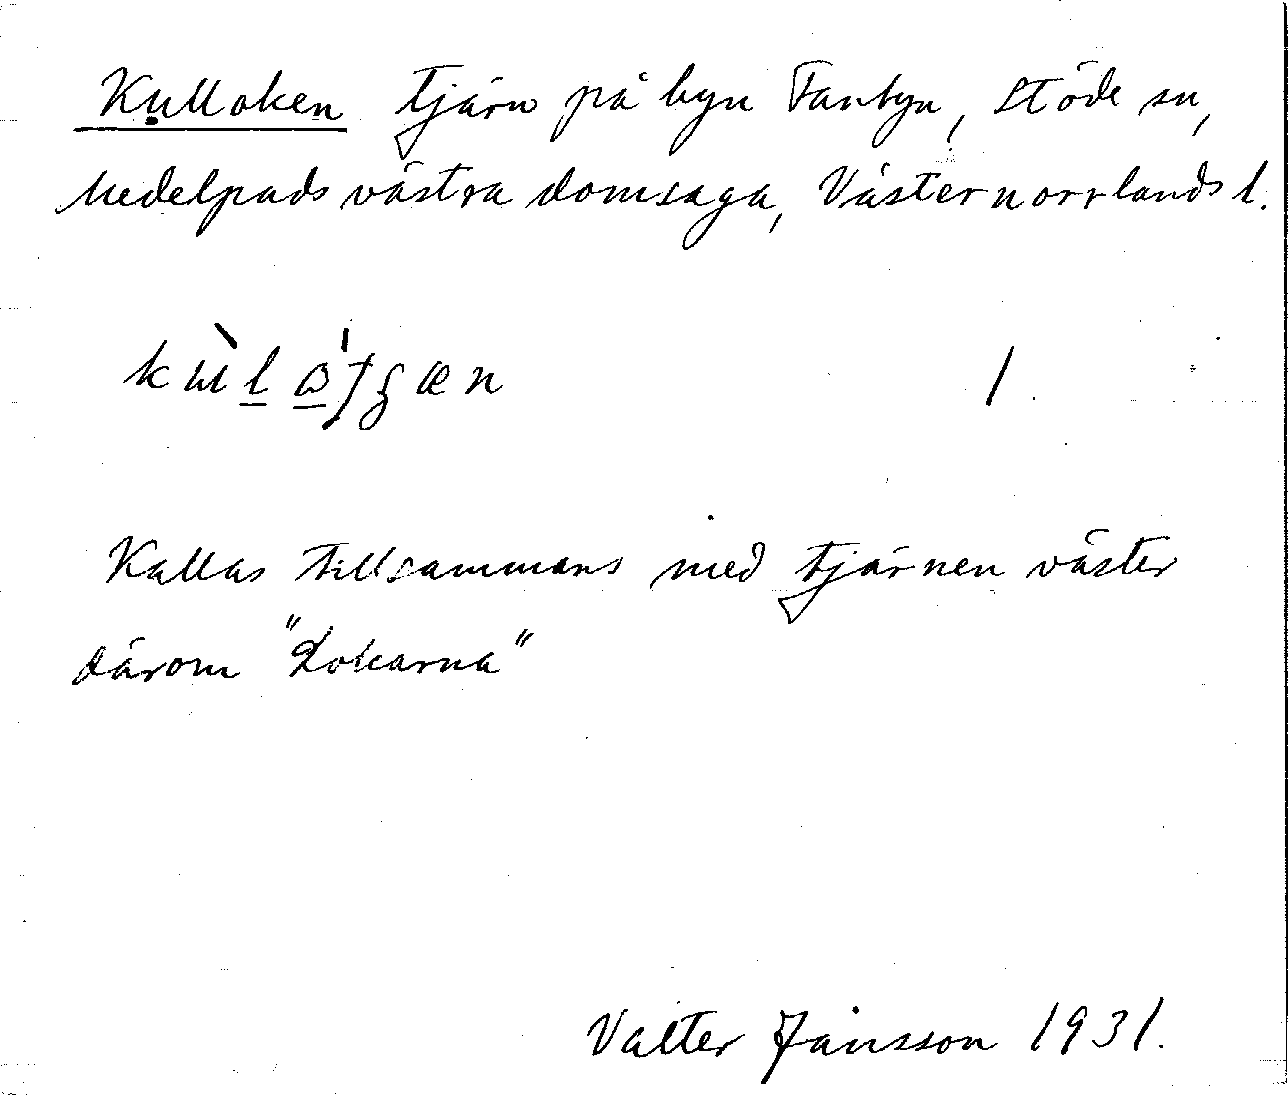 Kulloken tjärn på byn Fanbyn, Stöde sn,
Medelpads västra domsaga, Västernorrlands l.
1
Kallas tillsammans med tjärnen väster
därom "Lokarna"
Valter Jansson 1931.